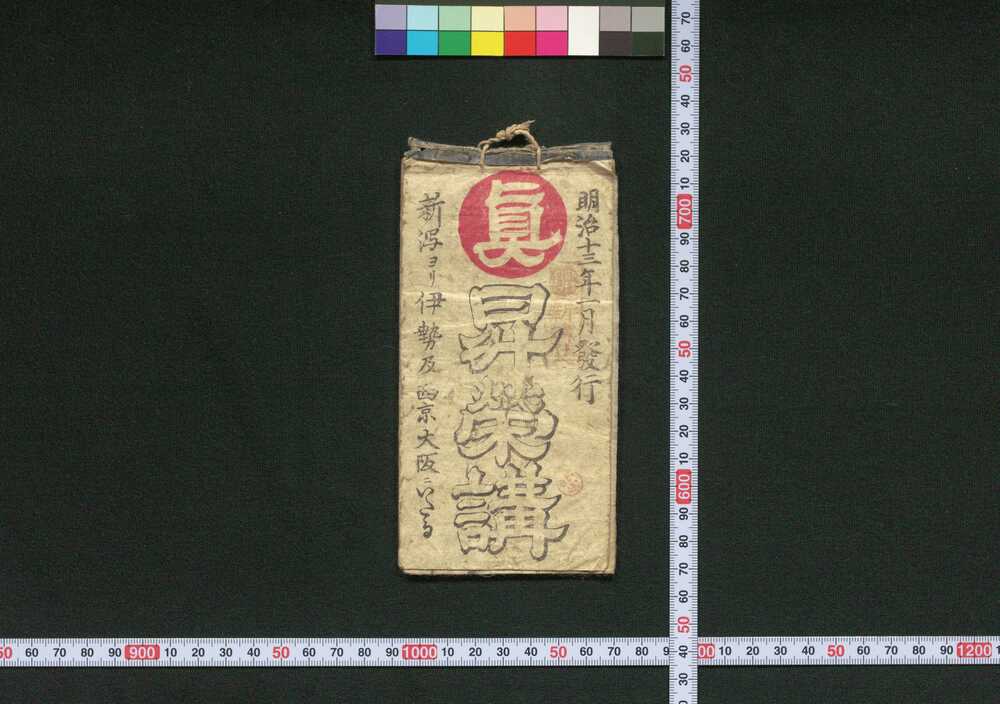 明治十三年一月發行
眞
昇榮講
新潟ヨリ伊勢及西京大阪ニいたる
70
60
50
40
30
20
10
700
90
80
70
60
50
40
30
20
10
600
90
80
70
60
50
40
30
50 60 70 80 90 900 10 20 30 40 50 60 70 80 90 1000 10 20 30 40 50 60 70 80 00 10 20 30 40 50 60 70 80 90 1200